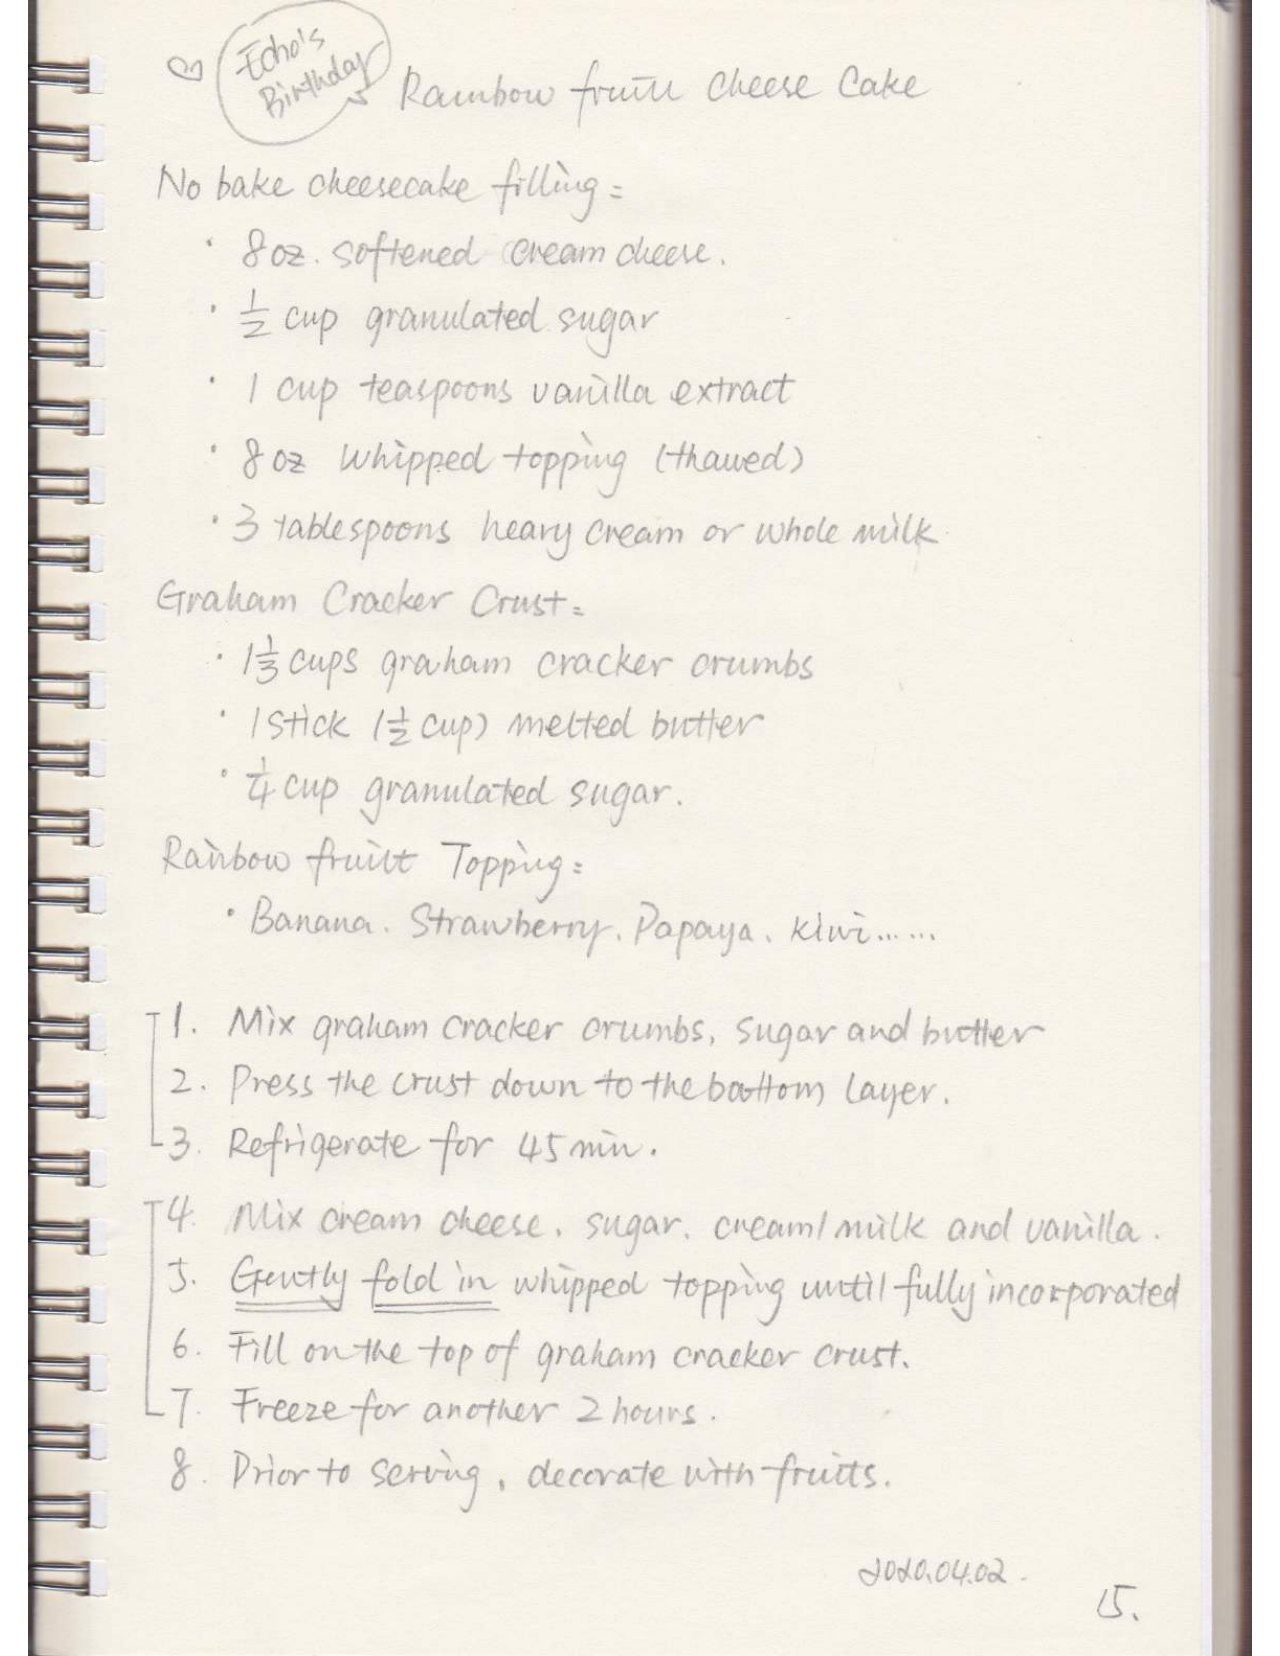 ♡ Echo's
Birthday
Rainbow fruit Cheese Cake
No bake cheesecake filling:
· 8 oz. softened cream cheese.
· 1/2 cup granulated sugar
· 1 cup teaspoons vanilla extract
· 8 oz whipped topping (thawed)
· 3 tablespoons heavy cream or whole milk
Graham Cracker Crust:
· 1 1/3 cups graham cracker crumbs
· 1 stick (1/2 cup) melted butter
· 1/4 cup granulated sugar.
Rainbow fruit Topping:
· Banana. Strawberry. Papaya. Kiwi......
1. Mix graham cracker crumbs, sugar and butter
2. Press the crust down to the bottom layer.
3. Refrigerate for 45 min.
4. Mix cream cheese. sugar. cream/milk and vanilla.
5. Gently fold in whipped topping until fully incorporated
6. Fill on the top of graham cracker crust.
7. Freeze for another 2 hours.
8. Prior to serving, decorate with fruits.
2020.04.02.
15.